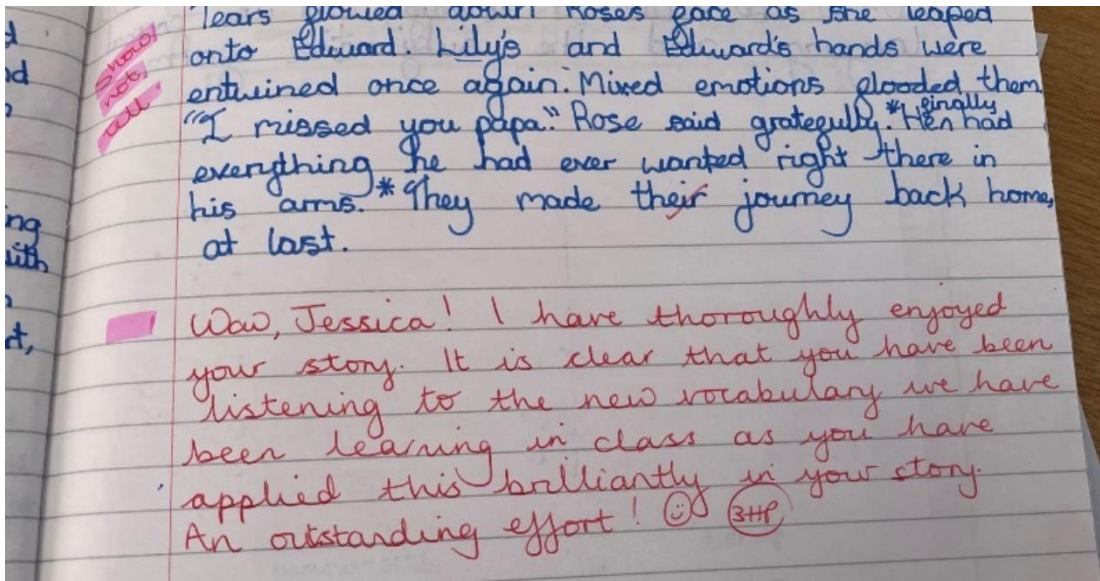 Tears flowed down Roses face as she leaped
onto Edward. Lily's and Edward's hands were
entwined once again. Mixed emotions flooded them.
"I missed you papa." Rose said gratefully. * He finally had
everything he had ever wanted right there in
his arms. * They made their journey back home,
at last.
Show
not
tell
ng
with
t,
Wow, Jessica! I have thoroughly enjoyed
your story. It is clear that you have been
listening to the new vocabulary we have
been learning in class as you have
applied this brilliantly in your story.
An outstanding effort! ☺ 3HP